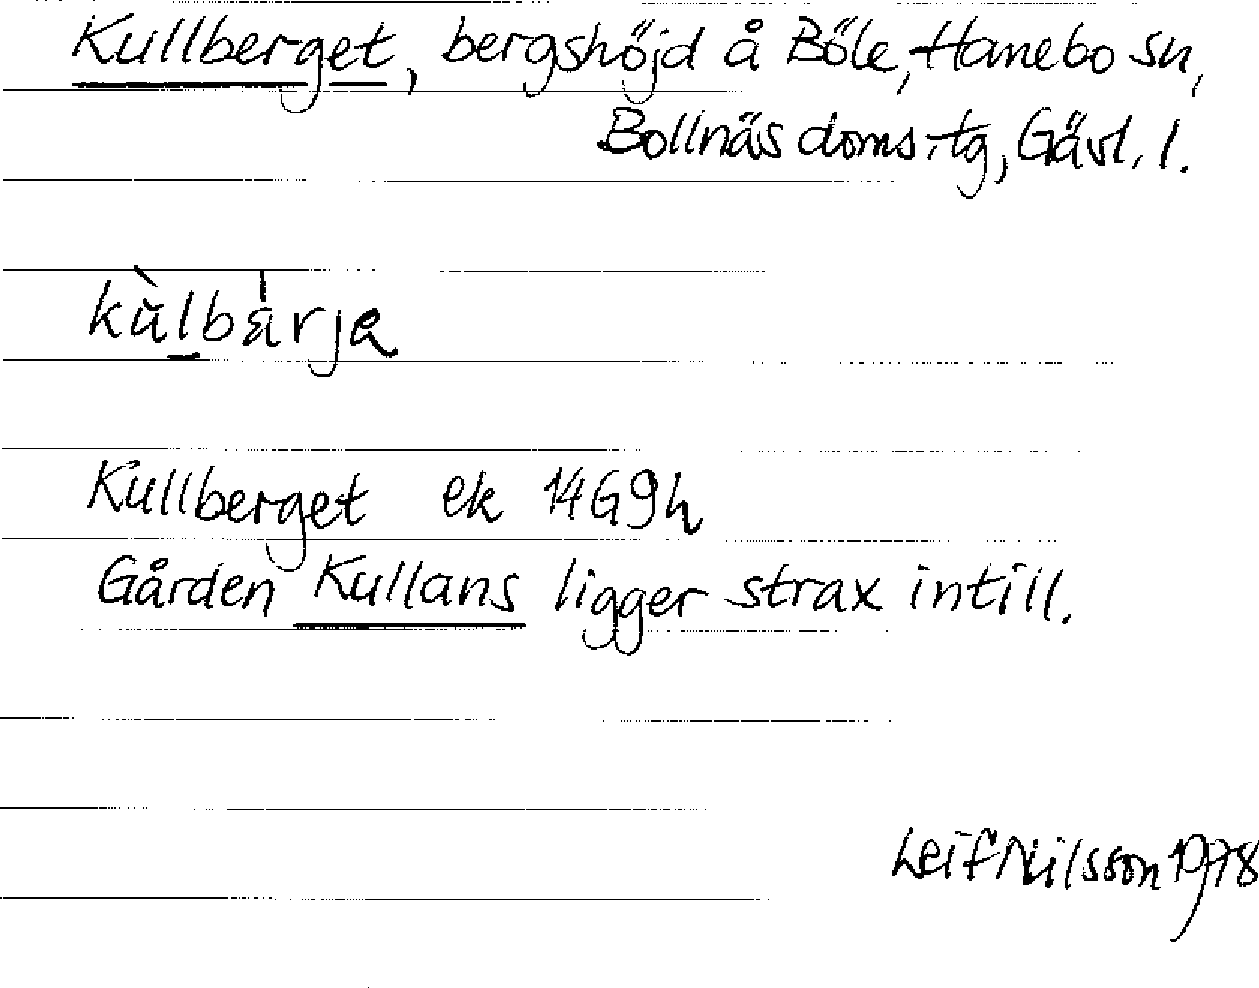 Kullberget, bergshöjd å Böle, Hanebo sn,
Bollnäs doms. tg, Gävl. l.
kùlbàrjа̊
Kullberget ek 14G9h
Gården Kullans ligger strax intill.
Leif Nilsson 1978